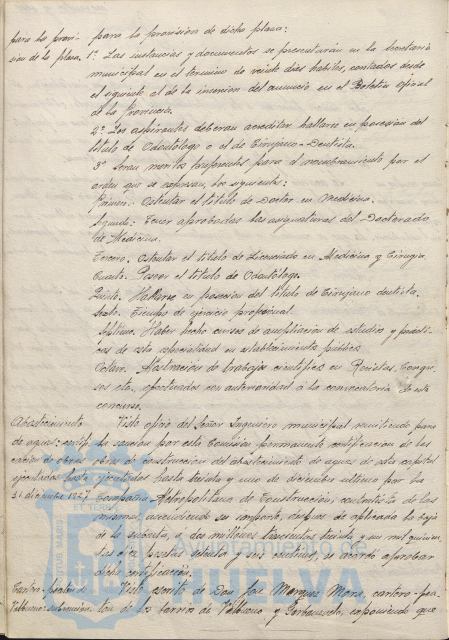 para la provi- para la provisión de dicha plaza:
sión de la plaza. 1ª. Las instancias y documentos se presentarán en la Secretaría
municipal en el termino de veinte dias habiles, contados desde
el siguiente al de la insercion del anuncio en el Boletin oficial
de la Provincia.
2ª. Los aspirantes deberan acreditar hallarse en posesión del
titulo de Odontólogo o el de Cirujano-Dentista.
3ª Seran meritos preferentes para el nombramiento por el
orden que se expresan, los siguientes:
Primero. Ostentar el titulo de Doctor en Medicina.
Segundo: Tener aprobadas las asignaturas del Doctorado
de Medicina.
Tercero. Ostentar el titulo de Licenciado en Medicina y Cirugía
Cuarto. Poseer el titulo de Odontólogo.
Quinto. Hallarse en posesion del titulo de Cirujano dentista.
Sexto. Tiempo de ejercicio profesional.
Septimo. Haber hecho cursos de ampliacion de estudios y practi-
cas de esta especialidad en establecimiento publico
Octavo. Publicación de trabajos cientificos en Revistas, Congre-
sos etc. efectuados con anterioridad a la convocatoria de este
concurso.
Abastecimiento Visto oficio del Señor Ingeniero municipal remitiendo para
de aguas: certifi- la sancion por esta Comisión permanente certificacion de las
cación de obras obras de construccion del abastecimiento de aguas de esta capital
ejecutadas hasta ejecutadas hasta treinta y uno de diciembre ultimo por la
31 diciembre 1927 Compañia Metropolitana de Construccion, contratista de las
mismas, ascendiendo su importe, despues de aplicada la baja
de la subasta, a dos millones trescientas treinta y un mil quinien-
tas diez pesetas setenta y seis centimos, se acordó aprobar
dicha certificación.
Cartero-peaton de Visto escrito de Don José Marquez Mora, cartero-pea-
ton de los barrios de y exponiendo que
HUELVA